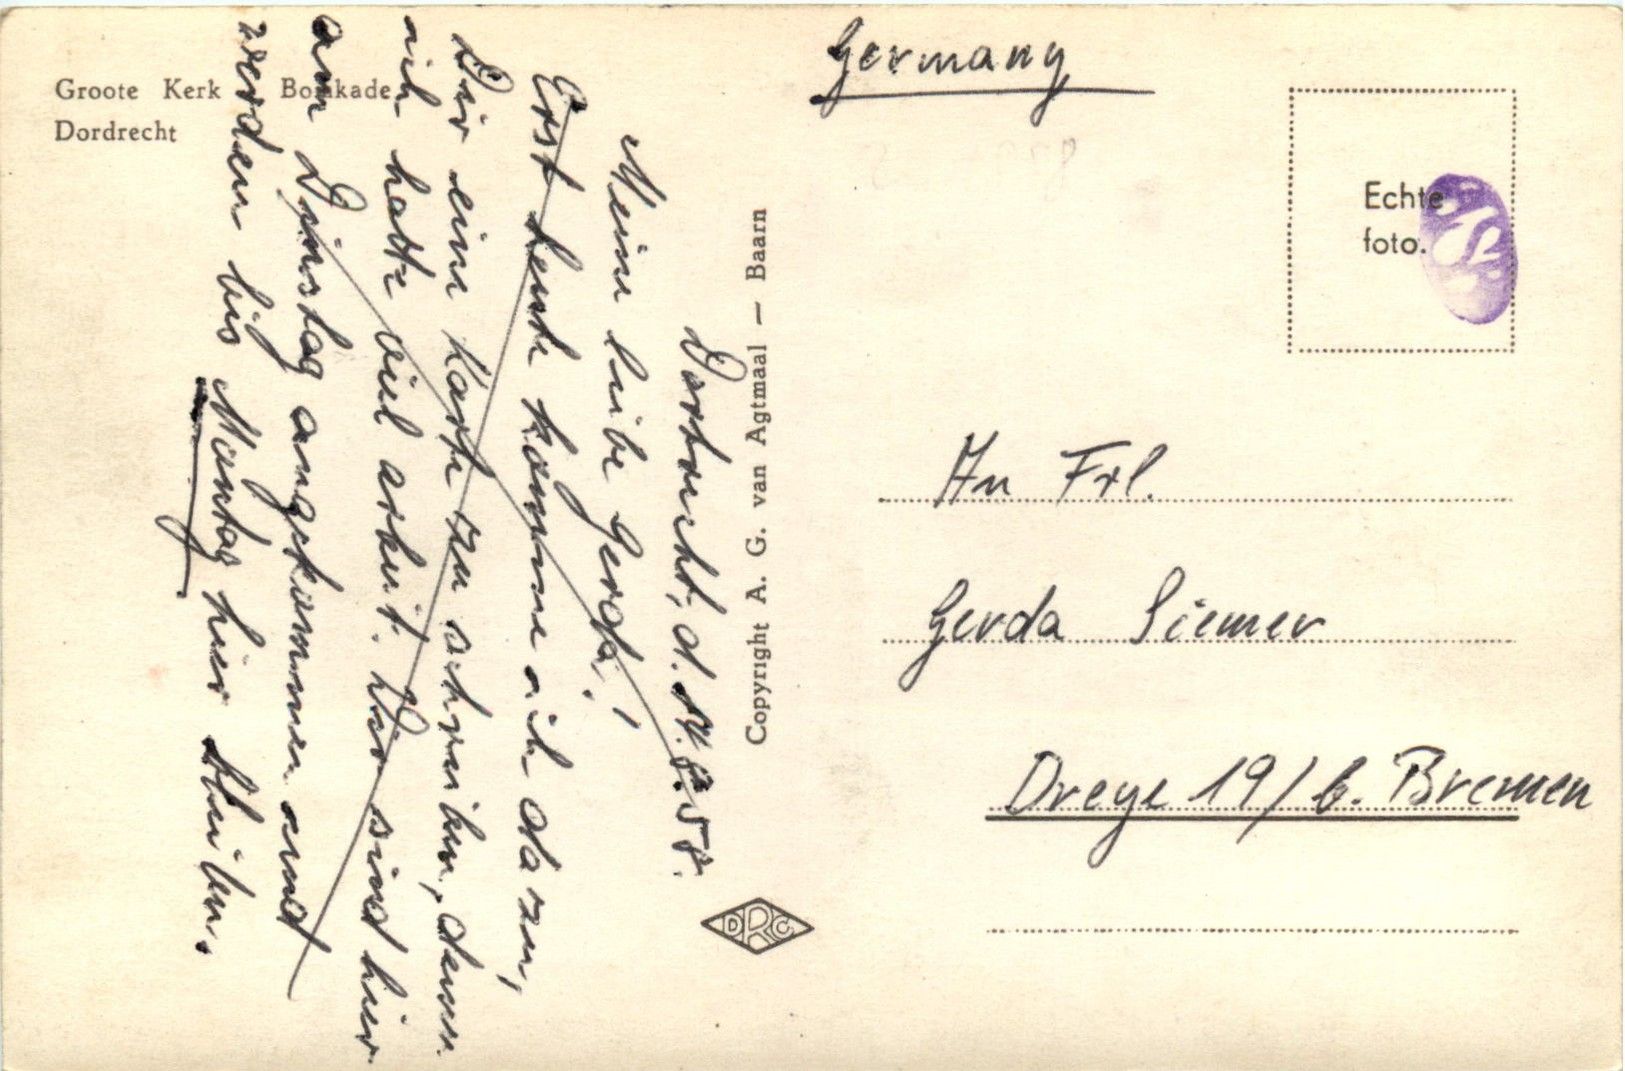 Groote Kerk Bomkade
Dordrecht
Dortrecht, d. 14. 8. 58.
Meine liebe Gerda!
Erst heute komme ich dazu,
Dir eine Karte zu schreiben, denn
ich hatte viel arbeit. Wir sind hier
am Dinstag angekommen und
werden bis Montag hier bleiben.
Copyright A. G. van Agtmaal — Baarn
DRC
Germany
Echte
foto.
An Frl.
Gerda Siemer
Dreye 19 / b. Bremen